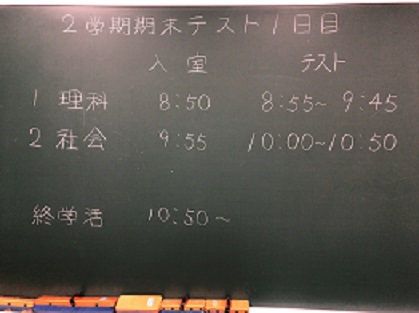 2学期期末テスト1日目
入室 テスト
1 理科 8:50 8:55~ 9:45
2 社会 9:55 10:00~10:50
終学活 10:50~